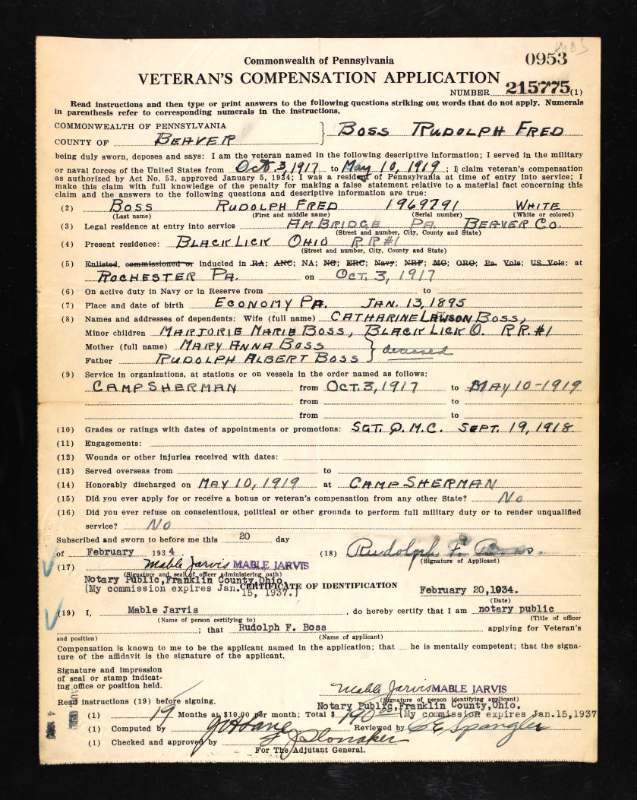 0953
Commonwealth of Pennsylvania
VETERAN'S COMPENSATION APPLICATION
NUMBER 215775 (1)
Read instructions and then type or print answers to the following questions striking out words that do not apply. Numerals
in parenthesis refer to corresponding numerals in the instructions.
COMMONWEALTH OF PENNSYLVANIA
COUNTY OF BEAVER } BOSS RUDOLPH FRED
being duly sworn, deposes and says: I am the veteran named in the following descriptive information; I served in the military
or naval forces of the United States from Oct 3, 1917 to May 10, 1919; I claim veteran's compensation
as authorized by Act No. 53, approved January 5, 1934; I was a resident of Pennsylvania at time of entry into service; I
make this claim with full knowledge of the penalty for making a false statement relative to a material fact concerning this
claim and the answers to the following questions and descriptive information are true:
(2) BOSS RUDOLPH FRED 1969791 WHITE
(Last name) (First and middle name) (Serial number) (White or colored)
(3) Legal residence at entry into service AMBRIDGE PA. BEAVER CO.
(Street and number, City, County and State)
(4) Present residence: BLACK LICK OHIO R.R#1
(Street and number, City, County and State)
(5) Enlisted, commissioned or inducted in RA: ANC: NA: NG: ERC: Navy: NRF: MC: ORC: Pa. Vols: US Vols: at
ROCHESTER PA. on OCT. 3, 1917
(6) On active duty in Navy or in Reserve from to
(7) Place and date of birth ECONOMY PA. JAN. 13, 1895
(8) Names and addresses of dependents: Wife (full name) CATHARINE LAWSON BOSS,
Minor children MARJORIE MARIE BOSS, BLACK LICK O. R.R.#1
Mother (full name) MARY ANNA BOSS
Father RUDOLPH ALBERT BOSS } deceased
(9) Service in organizations, at stations or on vessels in the order named as follows:
CAMP SHERMAN from OCT. 3, 1917 to MAY 10-1919
from to
from to
(10) Grades or ratings with dates of appointments or promotions: SGT. Q.M.C. SEPT. 19, 1918
(11) Engagements:
(12) Wounds or other injuries received with dates:
(13) Served overseas from to
(14) Honorably discharged on MAY 10, 1919 at CAMP SHERMAN
(15) Did you ever apply for or receive a bonus or veteran's compensation from any other State? No
(16) Did you ever refuse on conscientious, political or other grounds to perform full military duty or to render unqualified
service? No
Subscribed and sworn to before me this 20 day
of February 1934. (18) Rudolph F. Boss.
(Signature of Applicant)
(17) Mable Jarvis MABLE JARVIS
(Signature and seal of officer administering oath)
Notary Public, Franklin County, Ohio
[My commission expires Jan. 15, 1937.]
CERTIFICATE OF IDENTIFICATION February 20, 1934.
(Date)
(19) I, Mable Jarvis, do hereby certify that I am notary public
(Name of person certifying to) (Title of officer
; that Rudolph F. Boss applying for Veteran's
and position) (Name of applicant)
Compensation is known to me to be the applicant named in the application; that he is mentally competent; that the signa-
ture of the affidavit is the signature of the applicant.
Signature and impression
of seal or stamp indicat-
ing office or position held.
Mable Jarvis MABLE JARVIS
(Signature of person identifying applicant)
Read instructions (19) before signing. Notary Public, Franklin County, Ohio.
(1) 19 Months at $10.00 per month; Total $ 190.00 [My commission expires Jan. 15, 1937
(1) Computed by Reviewed by C E Spangler
(1) Checked and approved by
For The Adjutant General.